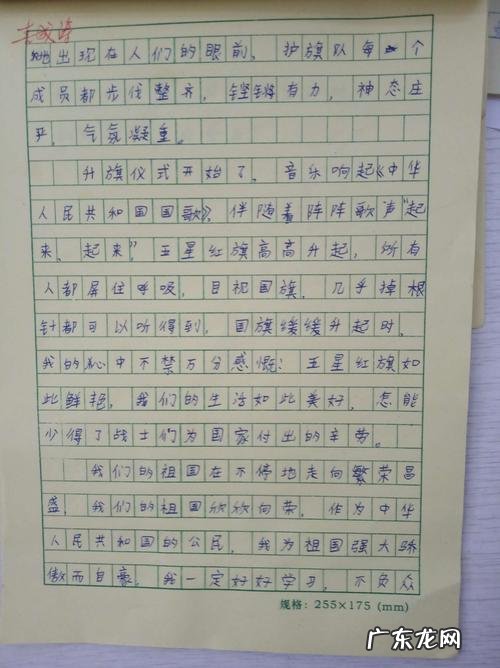 地出现在人们的眼前。护旗队每一个
成员都步伐整齐,铿锵有力,神态庄
乎,气氛凝重。
升旗仪式开始了。音乐响起《中华
人民共和国国歌》,伴随着阵阵歌声"起
来、起来"五星红旗高高升起,所有
人都屏住呼吸,目视国旗,几乎掉根
针都可以听得到。国旗缓缓升起时,
我的心中不禁万分感慨:五星红旗如
此鲜艳,我们的生活如此美好,怎能
少得了战士们为国家付出的辛劳。
我们的祖国在不停地走向繁荣昌
盛,我们的祖国欣欣向荣。作为中华
人民共和国的公民,我为祖国强大骄
傲而自豪。我一定好好学习,不负众
规格:255×175 (mm)
广东龙网